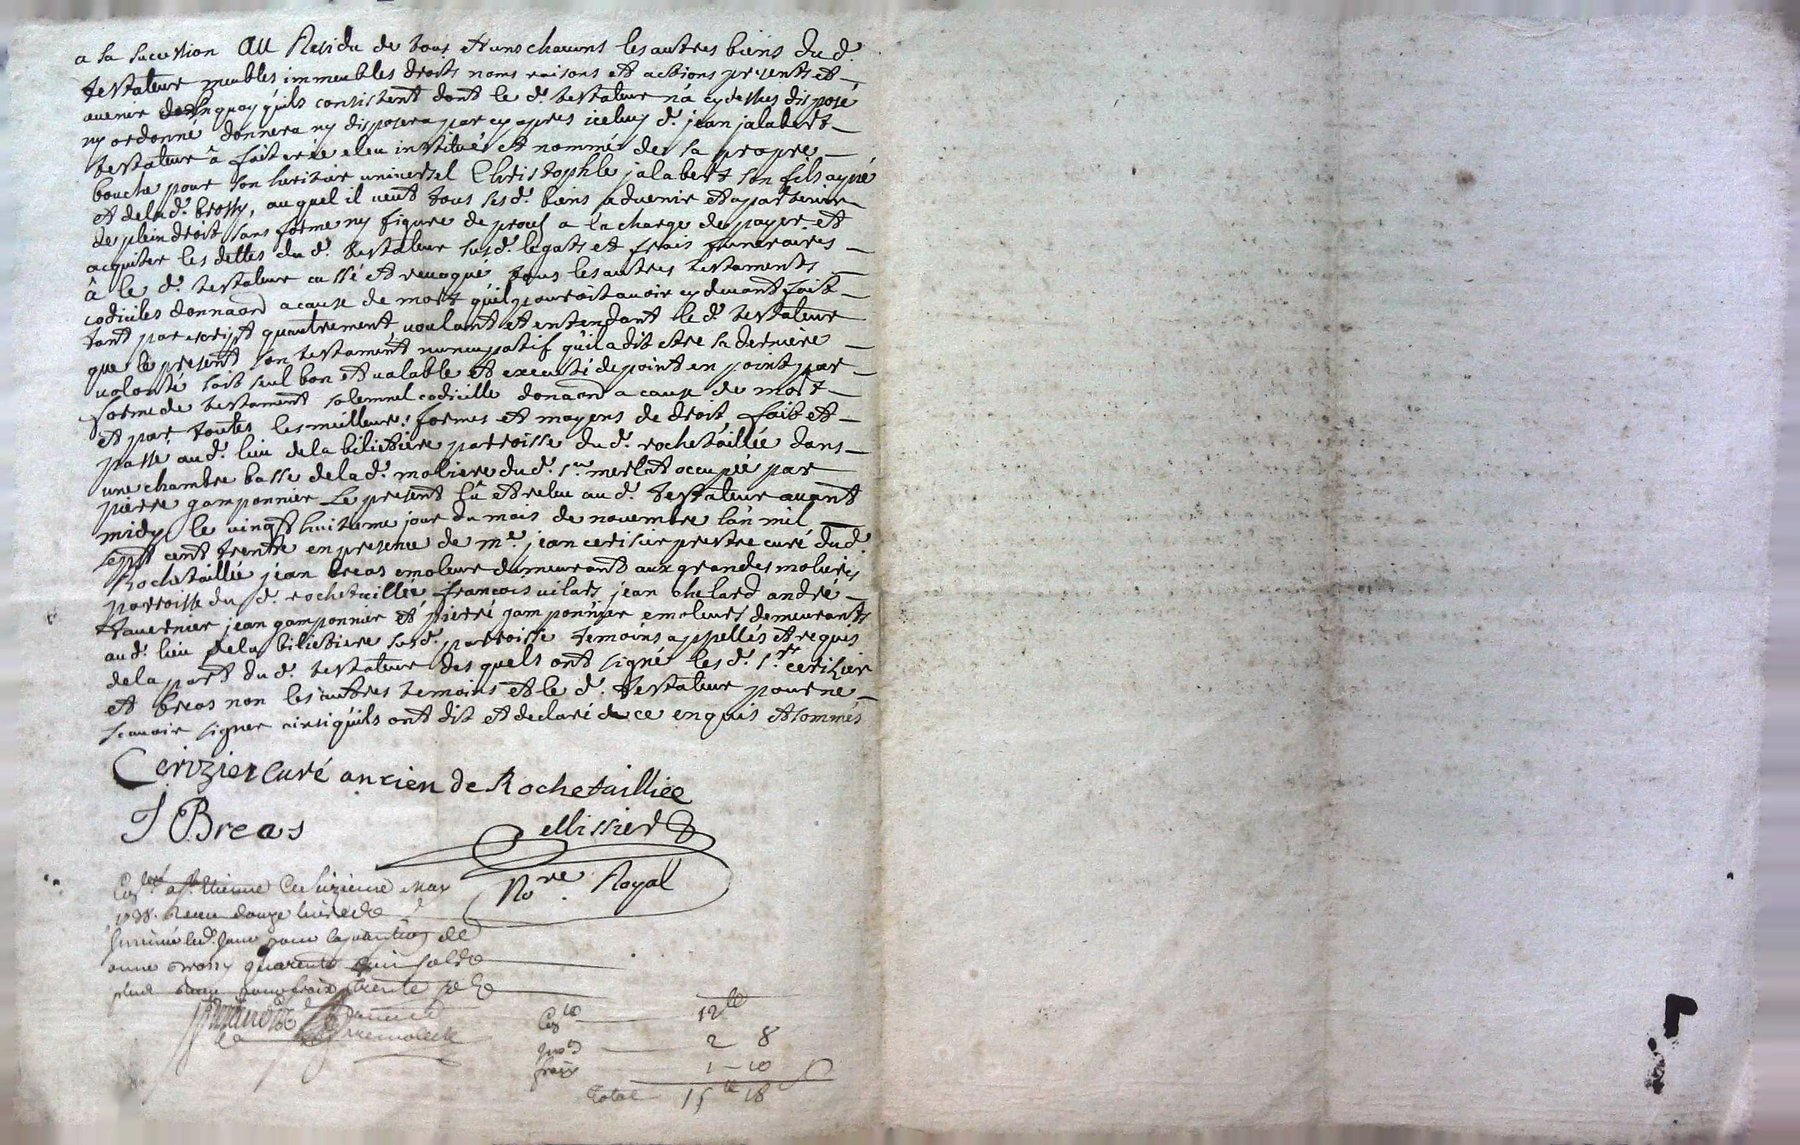 a sa sucession au Residu de tous et uns chacuns les autres biens du d.
testateur meubles immeubles droits noms raisons et actions presents et
avenir en quoy quils consistent dont le d. testateur n'a cy dessus disposé
ny ordonné donnera ny disposera par cy apres iceluy d. jean jalabert
testateur â fait crée eleu institué et nommé de sa propre
bouche pour son heritier universel Christophle jalabert son fils ayné
et de lad. brossy, auquel il veut tous sesd. biens advenir et apartenir
de plein droit sans forme ny figure de proces a la charge de payer et
acquiter les dettes du d. testateur susd. legats et frais funeraires
â le d. testateur cassé et revoqué tous les autres testaments
codiciles donnaõn a cause de mort qu'il pourroit avoir cy devant fait
tant par escript qu'autrement voulant et entendant le d. testateur
que le present son testament nuncupatif qu'il a dit etre sa derniere
volonté soit seul bon et valable et executé de point en point par
forme de testament solemnel codicille donaõn a cause de mort
et par toutes les meilleures formes et moyens de droit, fait et
passé au d. lieu de la biliebiere parroisse du d. rochetaillée dans
une chambre basse de la d. moliere du d. sr. merlat occupée par
pierre gamponnier Le present lû et relu au d. testateur avant
midy le vingt huitieme jour du mois de novembre l'an mil
sept cent trente en presence de me. jean cerisier prestre curé dud.
Rochetaillée jean breas emoleur demeurant aux grandes molieres
parroisse du d. rochetaillée françois vilars jean chelard andré
tavernier jean gamponnier et pierre gamponnier emoleurs demeurants
aud. lieu de la biliebiere susd. parroisse temoins appellés et requis
de la part du d. testateur des quels ont signé les d. sr. cerisier
et breas non les autres temoins et le d. testateur pour ne
scavoir signer ainsi quils ont dit et declaré de ce enquis et sommés
Cerizier curé ancien de Rochetailliee
J Breas
ellissier
Nore. Royal
a st. Etienne le sizieme May
1738. Receu douze livres
anne brossy quarente huit solds
plus Receu pour trente
12 lt
2 8
frais 1 - 10
Total 15 lt 18